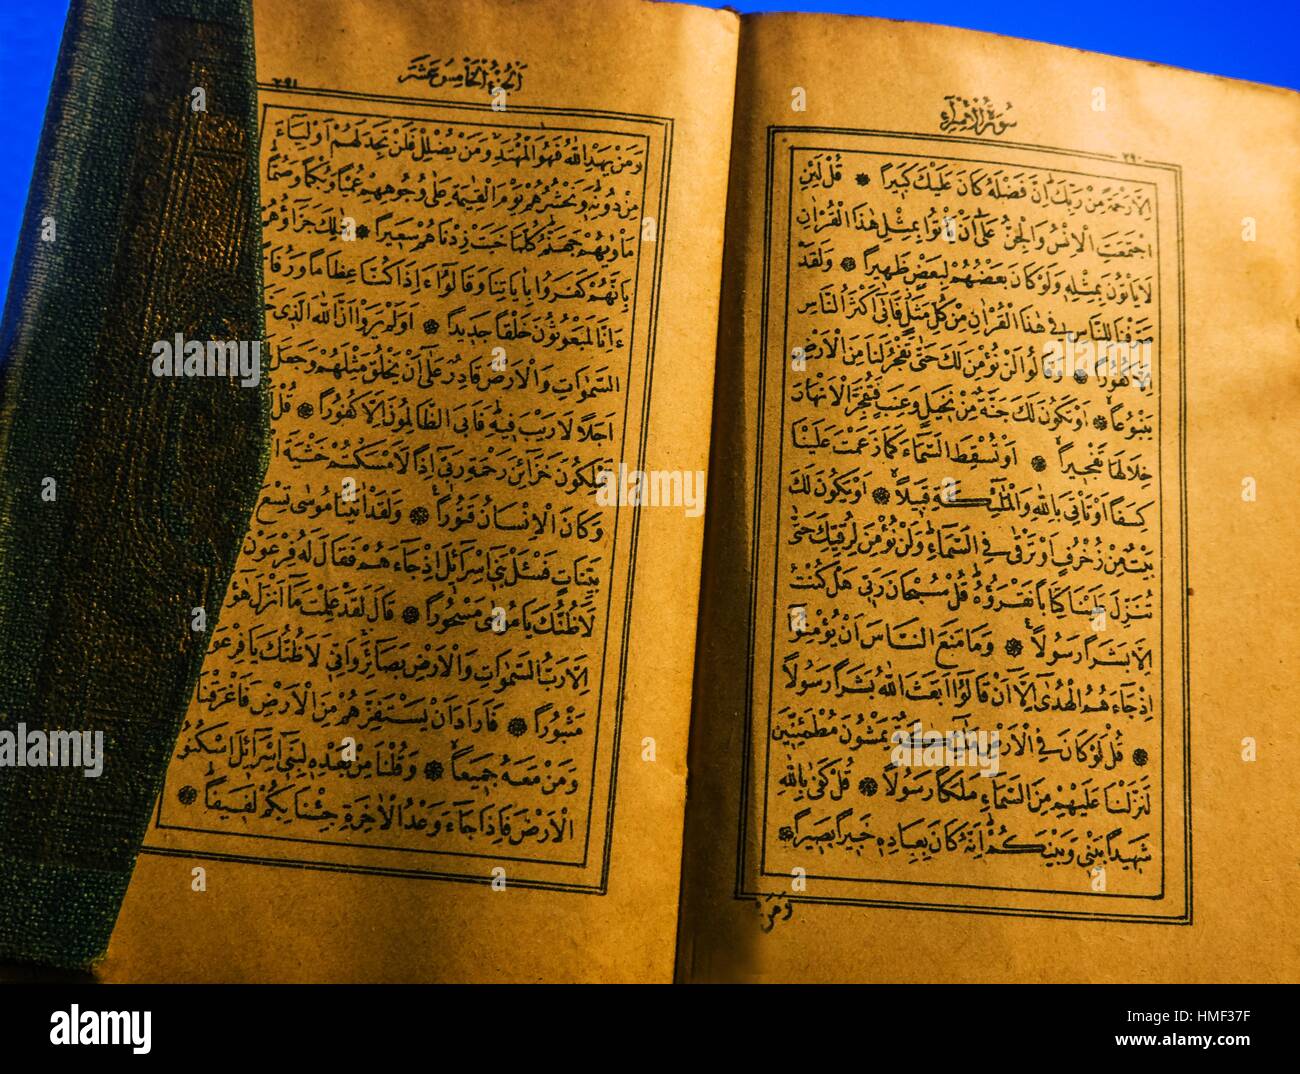 سورة الإسراء
٢٩٠
إِلَّا رَحْمَةً مِنْ رَبِّكَ إِنَّ فَضْلَهُ كَانَ عَلَيْكَ كَبِيرًا ۞ قُلْ لَئِنِ
اجْتَمَعَتِ الْإِنْسُ وَالْجِنُّ عَلَى أَنْ يَأْتُوا بِمِثْلِ هٰذَا الْقُرْاٰنِ
لَا يَأْتُونَ بِمِثْلِهِ وَلَوْ كَانَ بَعْضُهُمْ لِبَعْضٍ ظَهِيرًا ۞ وَلَقَدْ
صَرَّفْنَا لِلنَّاسِ فِي هٰذَا الْقُرْاٰنِ مِنْ كُلِّ مَثَلٍ فَأَبَى أَكْثَرُ النَّاسِ
إِلَّا كُفُورًا ۞ وَقَالُوا لَنْ نُؤْمِنَ لَكَ حَتَّى تَفْجُرَ لَنَا مِنَ الْأَرْضِ
يَنْبُوعًا ۞ أَوْ تَكُونَ لَكَ جَنَّةٌ مِنْ نَخِيلٍ وَعِنَبٍ فَتُفَجِّرَ الْأَنْهَارَ
خِلَالَهَا تَفْجِيرًا ۞ أَوْ تُسْقِطَ السَّمَاءَ كَمَا زَعَمْتَ عَلَيْنَا
كِسَفًا أَوْ تَأْتِيَ بِاللّٰهِ وَالْمَلٰئِكَةِ قَبِيلًا ۞ أَوْ يَكُونَ لَكَ
بَيْتٌ مِنْ زُخْرُفٍ أَوْ تَرْقَى فِي السَّمَاءِ وَلَنْ نُؤْمِنَ لِرُقِيِّكَ حَتَّى
تُنَزِّلَ عَلَيْنَا كِتَابًا نَقْرَؤُهُ قُلْ سُبْحَانَ رَبِّي هَلْ كُنْتُ
إِلَّا بَشَرًا رَسُولًا ۞ وَمَا مَنَعَ النَّاسَ أَنْ يُؤْمِنُوا
إِذْ جَاءَهُمُ الْهُدَى إِلَّا أَنْ قَالُوا أَبَعَثَ اللّٰهُ بَشَرًا رَسُولًا
۞ قُلْ لَوْ كَانَ فِي الْأَرْضِ مَلٰئِكَةٌ يَمْشُونَ مُطْمَئِنِّينَ
لَنَزَّلْنَا عَلَيْهِمْ مِنَ السَّمَاءِ مَلَكًا رَسُولًا ۞ قُلْ كَفَى بِاللّٰهِ
شَهِيدًا بَيْنِي وَبَيْنَكُمْ إِنَّهُ كَانَ بِعِبَادِهِ خَبِيرًا بَصِيرًا ۞
وَمَنْ
اَلْجُزْءُ الْخَامِسَ عَشَرَ
٢٩١
وَمَنْ يَهْدِ اللّٰهُ فَهُوَ الْمُهْتَدِ وَمَنْ يُضْلِلْ فَلَنْ تَجِدَ لَهُمْ أَوْلِيَاءَ
مِنْ دُونِهِ وَنَحْشُرُهُمْ يَوْمَ الْقِيٰمَةِ عَلَى وُجُوهِهِمْ عُمْيًا وَبُكْمًا وَصُمًّا
مَأْوٰيهُمْ جَهَنَّمُ كُلَّمَا خَبَتْ زِدْنَاهُمْ سَعِيرًا ۞ ذٰلِكَ جَزَاؤُهُمْ
بِأَنَّهُمْ كَفَرُوا بِاٰيَاتِنَا وَقَالُوا ءَإِذَا كُنَّا عِظَامًا وَرُفَا
ءَإِنَّا لَمَبْعُوثُونَ خَلْقًا جَدِيدًا ۞ أَوَلَمْ يَرَوْا أَنَّ اللّٰهَ الَّذِي خَ
السَّمٰوَاتِ وَالْأَرْضَ قَادِرٌ عَلَى أَنْ يَخْلُقَ مِثْلَهُمْ وَجَعَلَ
أَجَلًا لَا رَيْبَ فِيهِ فَأَبَى الظَّالِمُونَ إِلَّا كُفُورًا ۞ قُلْ
تَمْلِكُونَ خَزَائِنَ رَحْمَةِ رَبِّي إِذًا لَأَمْسَكْتُمْ خَشْيَةَ
وَكَانَ الْإِنْسَانُ قَتُورًا ۞ وَلَقَدْ اٰتَيْنَا مُوسَى تِسْعَ
بَيِّنَاتٍ فَسْئَلْ بَنِي إِسْرَائِيلَ إِذْ جَاءَهُمْ فَقَالَ لَهُ فِرْعَوْنُ
لَأَظُنُّكَ يَا مُوسَى مَسْحُورًا ۞ قَالَ لَقَدْ عَلِمْتَ مَا أَنْزَلَ هٰؤُ
إِلَّا رَبُّ السَّمٰوَاتِ وَالْأَرْضِ بَصَائِرَ وَإِنِّي لَأَظُنُّكَ يَا فِرْعَوْ
مَثْبُورًا ۞ فَأَرَادَ أَنْ يَسْتَفِزَّهُمْ مِنَ الْأَرْضِ فَأَغْرَقْنَا
وَمَنْ مَعَهُ جَمِيعًا ۞ وَقُلْنَا مِنْ بَعْدِهِ لِبَنِي إِسْرَائِيلَ اسْكُنُوا
الْأَرْضَ فَإِذَا جَاءَ وَعْدُ الْاٰخِرَةِ جِئْنَا بِكُمْ لَفِيفًا ۞
alamy
alamy stock photo
HMF37F
www.alamy.com